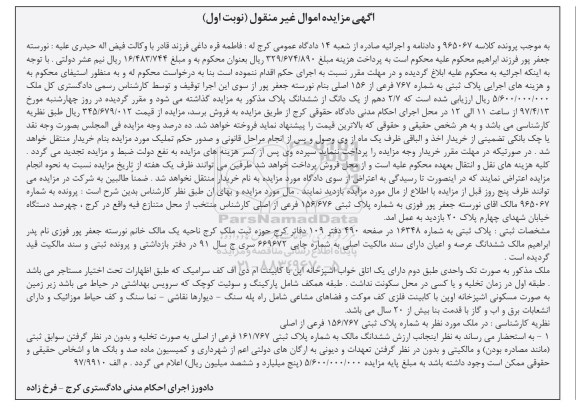 آگهی مزایده اموال غیر منقول (نوبت اول)
به موجب پرونده کلاسه ۹۶۵۰۶۷ و دادنامه و اجرائیه صادره از شعبه ۱۴ دادگاه عمومی کرج له : فاطمه قره داغی فرزند قادر با وکالت فیض اله حیدری علیه : نورسته
جعفر پور فرزند ابراهیم محکوم علیه محکوم است به پرداخت هزینه مبلغ ۳۲۹/۶۷۴/۸۹۰ ریال بعنوان محکوم به و مبلغ ۱۶/۴۸۳/۷۴۴ ریال نیم عشر دولتی . با توجه
به اینکه اجرائیه به محکوم علیه ابلاغ گردیده و در مهلت مقرر نسبت به اجرای حکم اقدام ننموده است بنا به درخواست محکوم له و به منظور استیفای محکوم به
و هزینه های اجرایی پلاک ثبتی به شماره ۷۶۷ فرعی از ۱۵۶ اصلی بنام نورسته جعفر پور از سوی این اجرا توقیف و توسط کارشناس رسمی دادگستری کل ملک
۵/۶۰۰/۰۰۰/۰۰۰ ریال ارزیابی شده است که ۲/۷ دهم از یک دانگ از ششدانگ پلاک مذکور به مزایده گذاشته می شود و مقرر گردیده در روز چهارشنبه مورخ
۹۷/۴/۱۳ از ساعت ۱۱ الی ۱۲ در محل اجرای احکام مدنی دادگاه حقوقی کرج از طریق مزایده به فروش برسد، مزایده از قیمت ۳۴۵/۶۷۹/۰۱۲ ریال طبق نظریه
کارشناسی می باشد و به هر شخص حقیقی و حقوقی که بالاترین قیمت را پیشنهاد نماید فروخته خواهد شد. ده درصد وجه مزایده فی المجلس بصورت وجه نقد
یا چک بانکی تضمینی از خریدار اخذ و الباقی ظرف یک ماه از وی وصول و پس از انجام مراحل قانونی و صدور حکم تملیک مورد مزایده بنام خریدار منتقل خواهد
شد . در صورتیکه در مهلت مقرر خریدار وجه مزایده را پرداخت ننماید سپرده وی پس از کسر هزینه های مزایده به نفع دولت ضبط و مزایده تجدید می گردد .
کلیه هزینه های نقل و انتقال بعهده محکوم علیه است و از محل فروش پرداخت خواهد شد طرفین می توانند ظرف یک هفته از تاریخ مزایده نسبت به نحوه انجام
مزایده اعتراض نمایند که در اینصورت تا رسیدگی به اعتراض از سوی دادگاه مورد مزایده به نام خریدار منتقل نخواهد شد . ضمناً طالبین به شرکت در مزایده می
توانند ظرف پنج روز قبل از مزایده با اطلاع از مال مورد مزایده بازدید نمایند . مال مورد مزایده و بهای آن طبق نظر کارشناس بدین شرح است : پرونده به شماره
۹۶۵۰۶۷ مالک آقای نورسته جعفر پور فوزی به شماره پلاک ثبتی ۱۵۶/۶۷۶ فرعی از اصلی کارشناس منتخب از محل متنازع فیه واقع در کرج ، چهارصد دستگاه
خیابان شهدای چهارم پلاک ۲۰ بازدید به عمل آمد.
مشخصات ثبتی : پلاک ثبتی به شماره ۱۶۳۴۸ در صفحه ۴۹۰ دفتر ۱۰۹ دفاتر کرج حوزه ثبت ملک کرج ناحیه یک مالک خانم نورسته جعفر پور فوزی نام پدر
ابراهیم مالک ششدانگ عرصه و اعیان دارای سند مالکیت اصلی به شماره چاپی ۶۶۹۶۷۲ سری ج سال ۹۱ در دفتر بازداشتی و پرونده ثبتی و سند مالکیت قید
گردیده است .
ملک مذکور به صورت تک واحدی طبق دوم دارای یک اتاق خواب آشپزخانه اپن با کابینت ام دی اف کف سرامیک که طبق اظهارات تحت اختیار مستاجر می باشد
. طبقه اول در زمان تخلیه و یا کسی در محل سکونت نداشت . طبقه همکف شامل پارکینگ و سوئیت کوچک که سرویس بهداشتی در حیاط می باشد زیر زمین
به صورت مسکونی آشپزخانه اوپن با کابینت فلزی کف موکت و فضاهای مشاعی شامل راه پله سنگ - دیوارها نقاشی - نما سنگ و کف حیاط موزائیک و دارای
انشعابات برق و آب و گاز با قدمت بنا بیش از ۲۰ سال می باشد.
نظریه کارشناسی : در ملک مورد نظر به شماره پلاک ثبتی ۱۵۶/۷۶۷ فرعی از اصلی
۱ - به استحضار می رساند به نظر اینجانب ارزش ششدانگ مالک به شماره پلاک ثبتی ۱۶۱/۷۶۷ فرعی از اصلی به صورت تخلیه و بدون در نظر گرفتن سوابق ثبتی
(مانند مصادره بودن) و مالکیتی و بدون در نظر گرفتن تعهدات و دیونی به ارگان های دولتی اعم از شهرداری و کمیسیون ماده صد و بانک ها و اشخاص حقیقی و
حقوقی ممکن است وجود داشته باشد به مبلغ پایه مزایده ۵/۶۰۰/۰۰۰/۰۰۰ (پنج میلیارد و ششصد میلیون ریال) اعلام می گردد . م الف ۹۷/۹۹۱۰
دادورز اجرای احکام مدنی دادگستری کرج - فرخ زاده